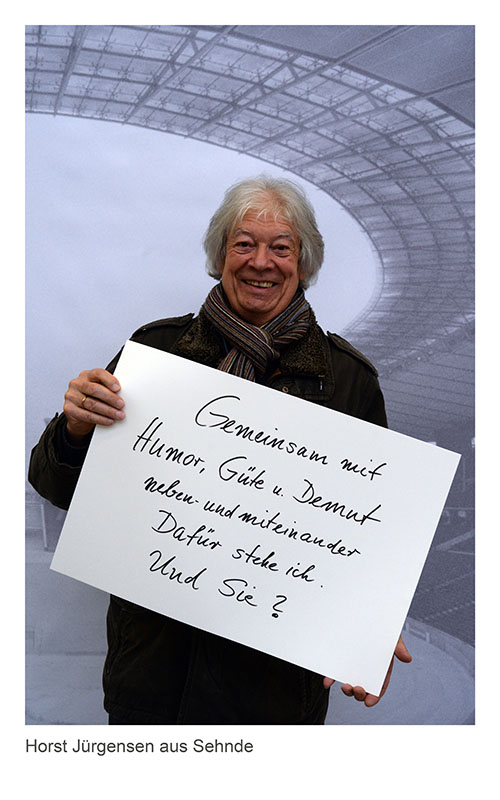 Gemeinsam mit
Humor, Güte u. Demut
neben- und miteinander
Dafür stehe ich.
Und Sie?
Horst Jürgensen aus Sehnde